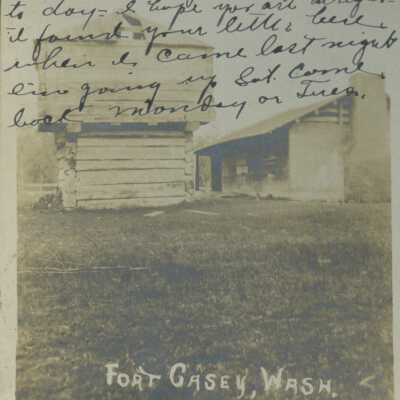 to day - I hope you are alright
I found your letter here
when I came last night
am going up Sat. Come
back Monday or Tues.
FORT CASEY, WASH.